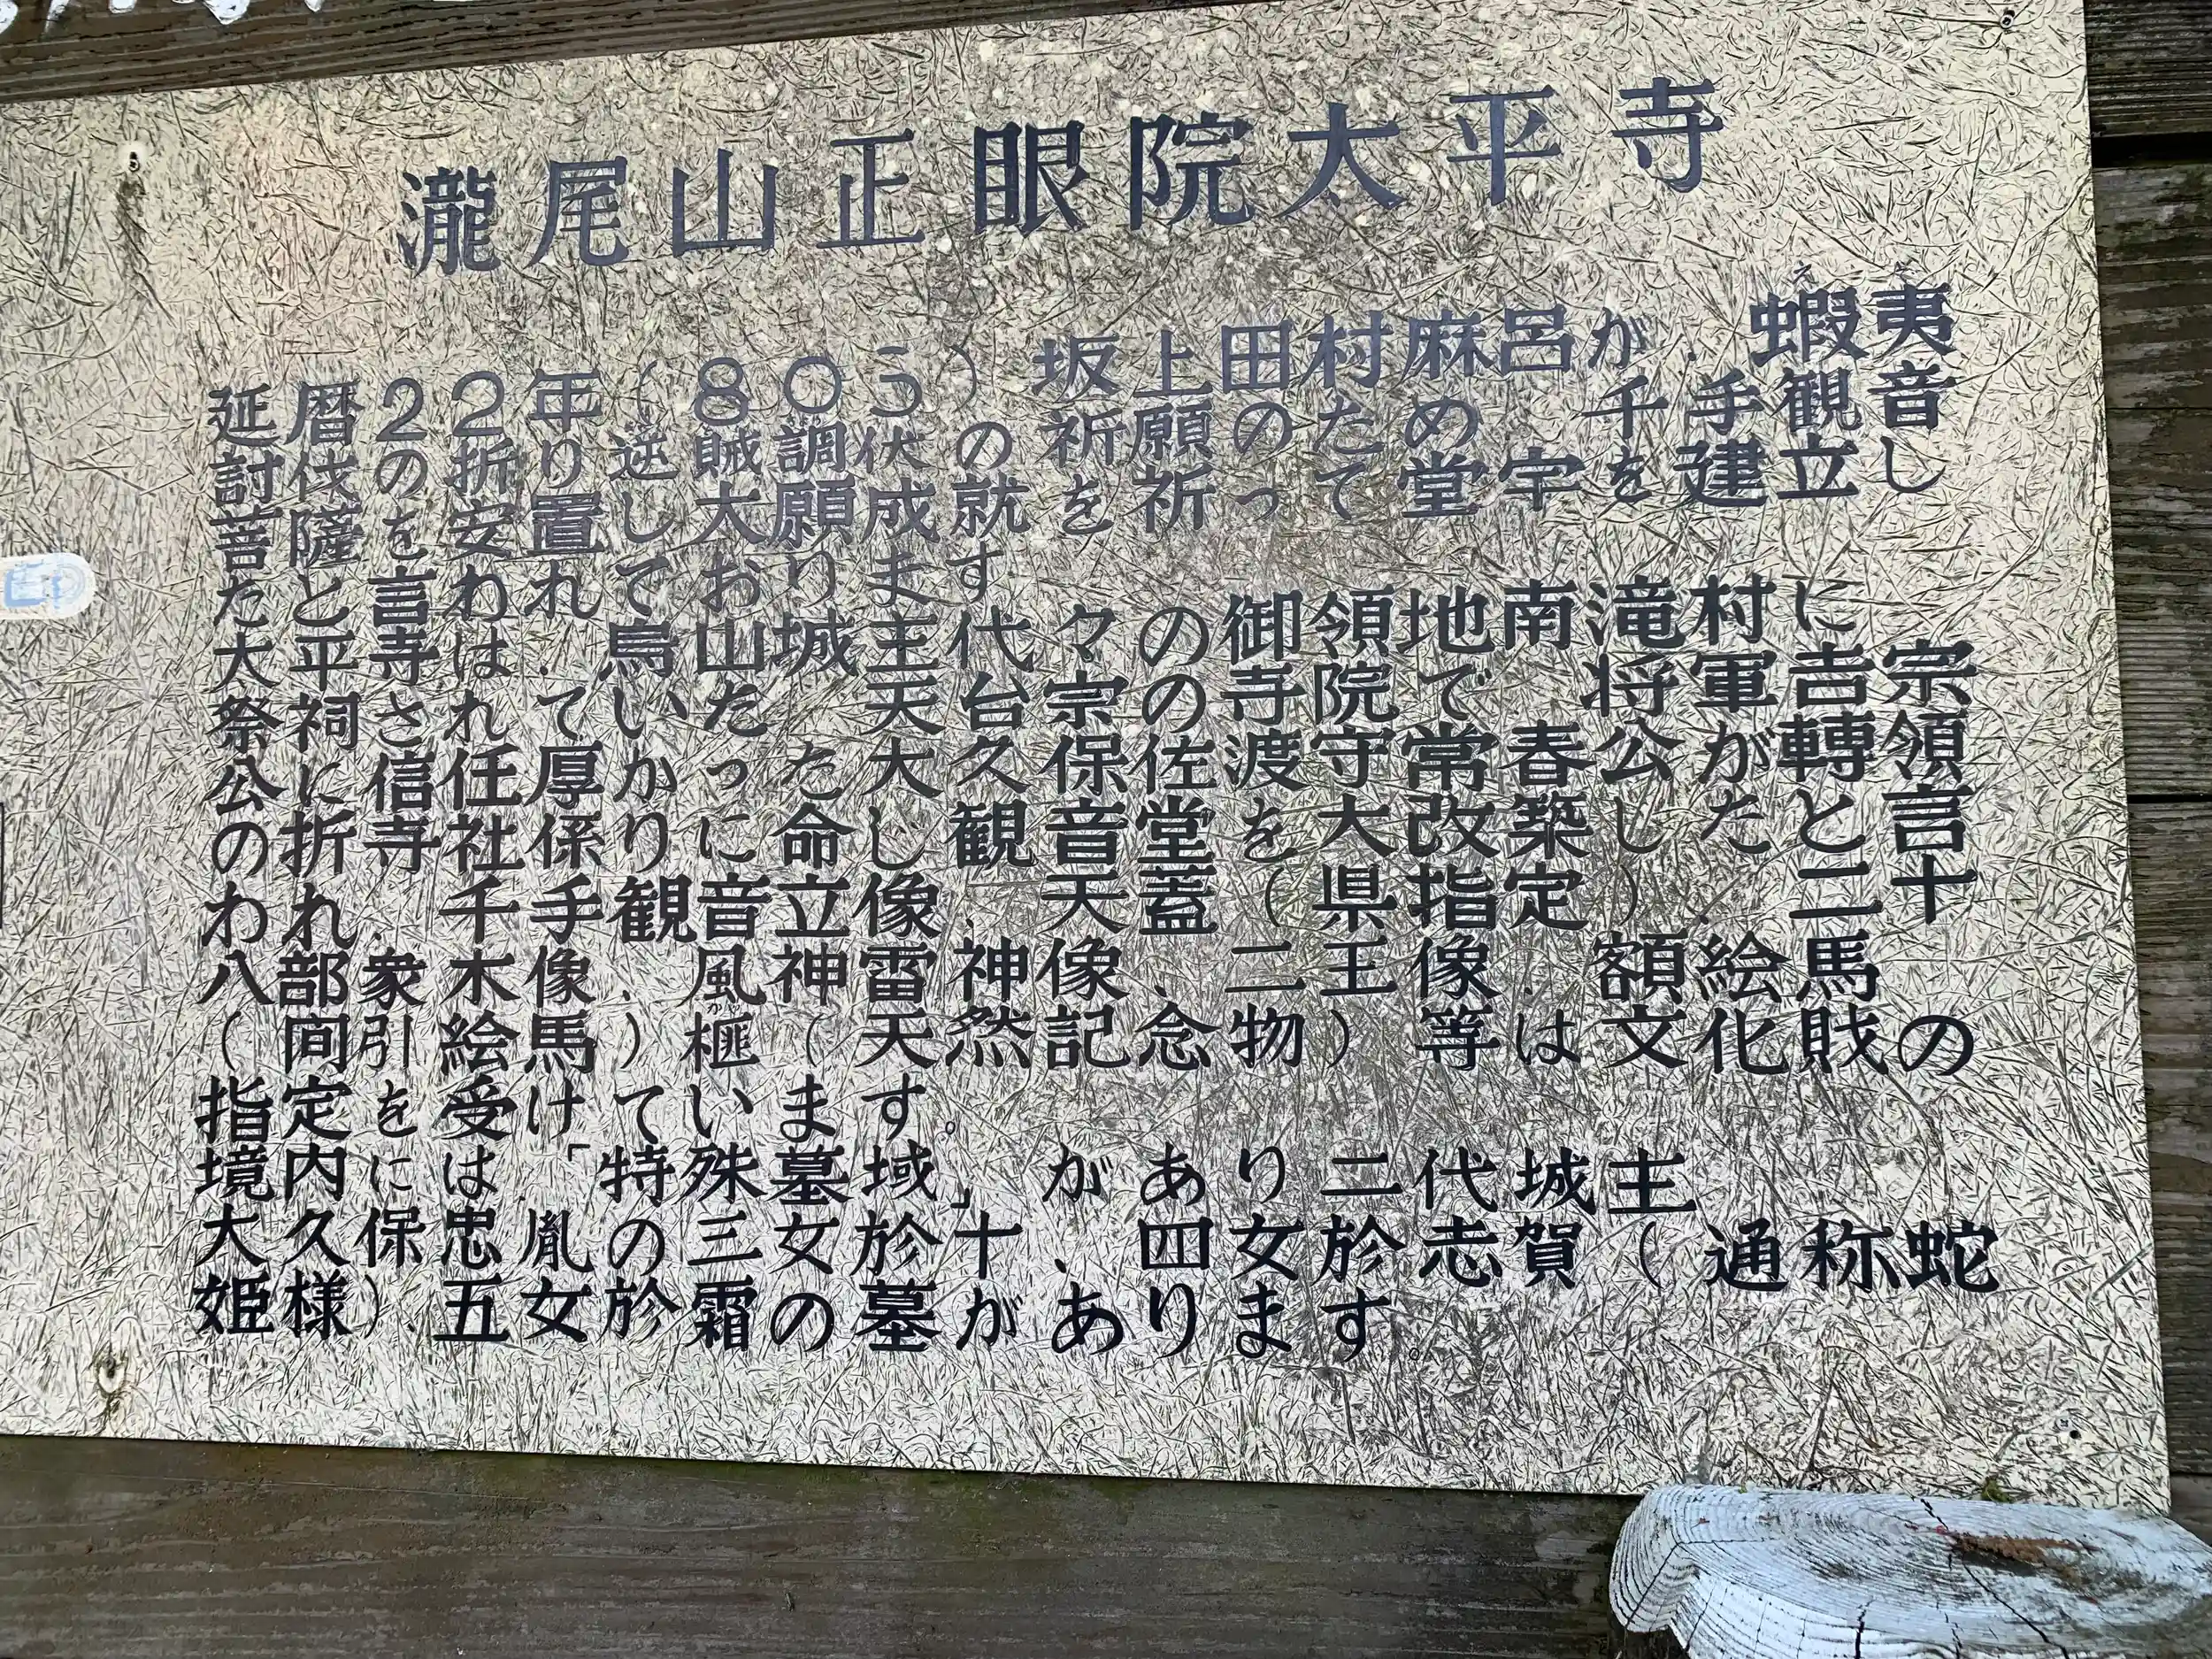 瀧尾山正眼院太平寺
延暦22年(805)坂上田村麻呂が、蝦夷
え ぞ
討伐の折り逆賊調伏の祈願のため千手観音
菩薩を安置して大願成就を祈って堂宇を建立し
たと言われております
大平寺は、烏山城主代々の御領地南滝村に
祭祠されていた天台宗の寺院で将軍吉宗
公に信任厚かった大久保佐渡守常春公が轉領
の折寺社係りに命し観音堂を大改築したと言
われ、千手観音立像、天蓋(県指定)、二十
八部衆木像、風神雷神像、二王像、額絵馬
(間引絵馬)榧(天然記念物)等は文化財の
指定を受けています。
境内には、「特殊墓域」があり二代城主
大久保忠胤の三女於十、四女於志賀(通称蛇
姫様)、五女於霜の墓があります。